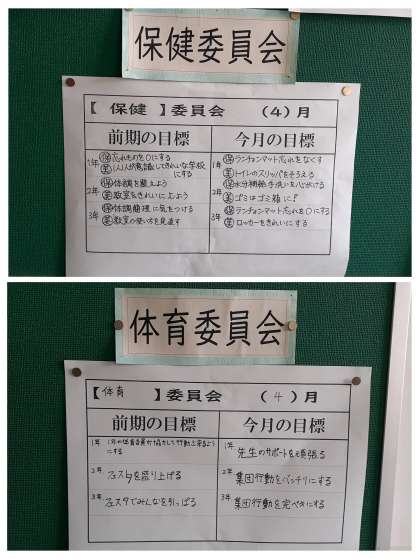 保健委員会
【 保健 】委員会 （4）月
前期の目標
今月の目標
1年 保 忘れものを0にする
美 1人1人が意識してきれいな学校
にする
2年 保 体調を整えよう
美 教室をきれいにしよう
3年 保 体調管理に気をつける
美 教室の使い方を見直す
1年 保 ランチョンマット忘れをなくす
美 トイレのスリッパをそろえる
2年 保 水分補給、手洗いを心がける
美 ゴミはゴミ箱に!
3年 保 ランチョンマット忘れを0にする
美 ロッカーをきれいにする
体育委員会
【 体育 】委員会 （4）月
前期の目標
今月の目標
1年 協力して行動出来るよう
にする
2年 フェスタを盛り上げる
3年 フェスタでみんなを引っぱる
1年 先生のサポートを頑張る
2年 集団行動をバッチリにする
3年 集団行動を完ぺきにする